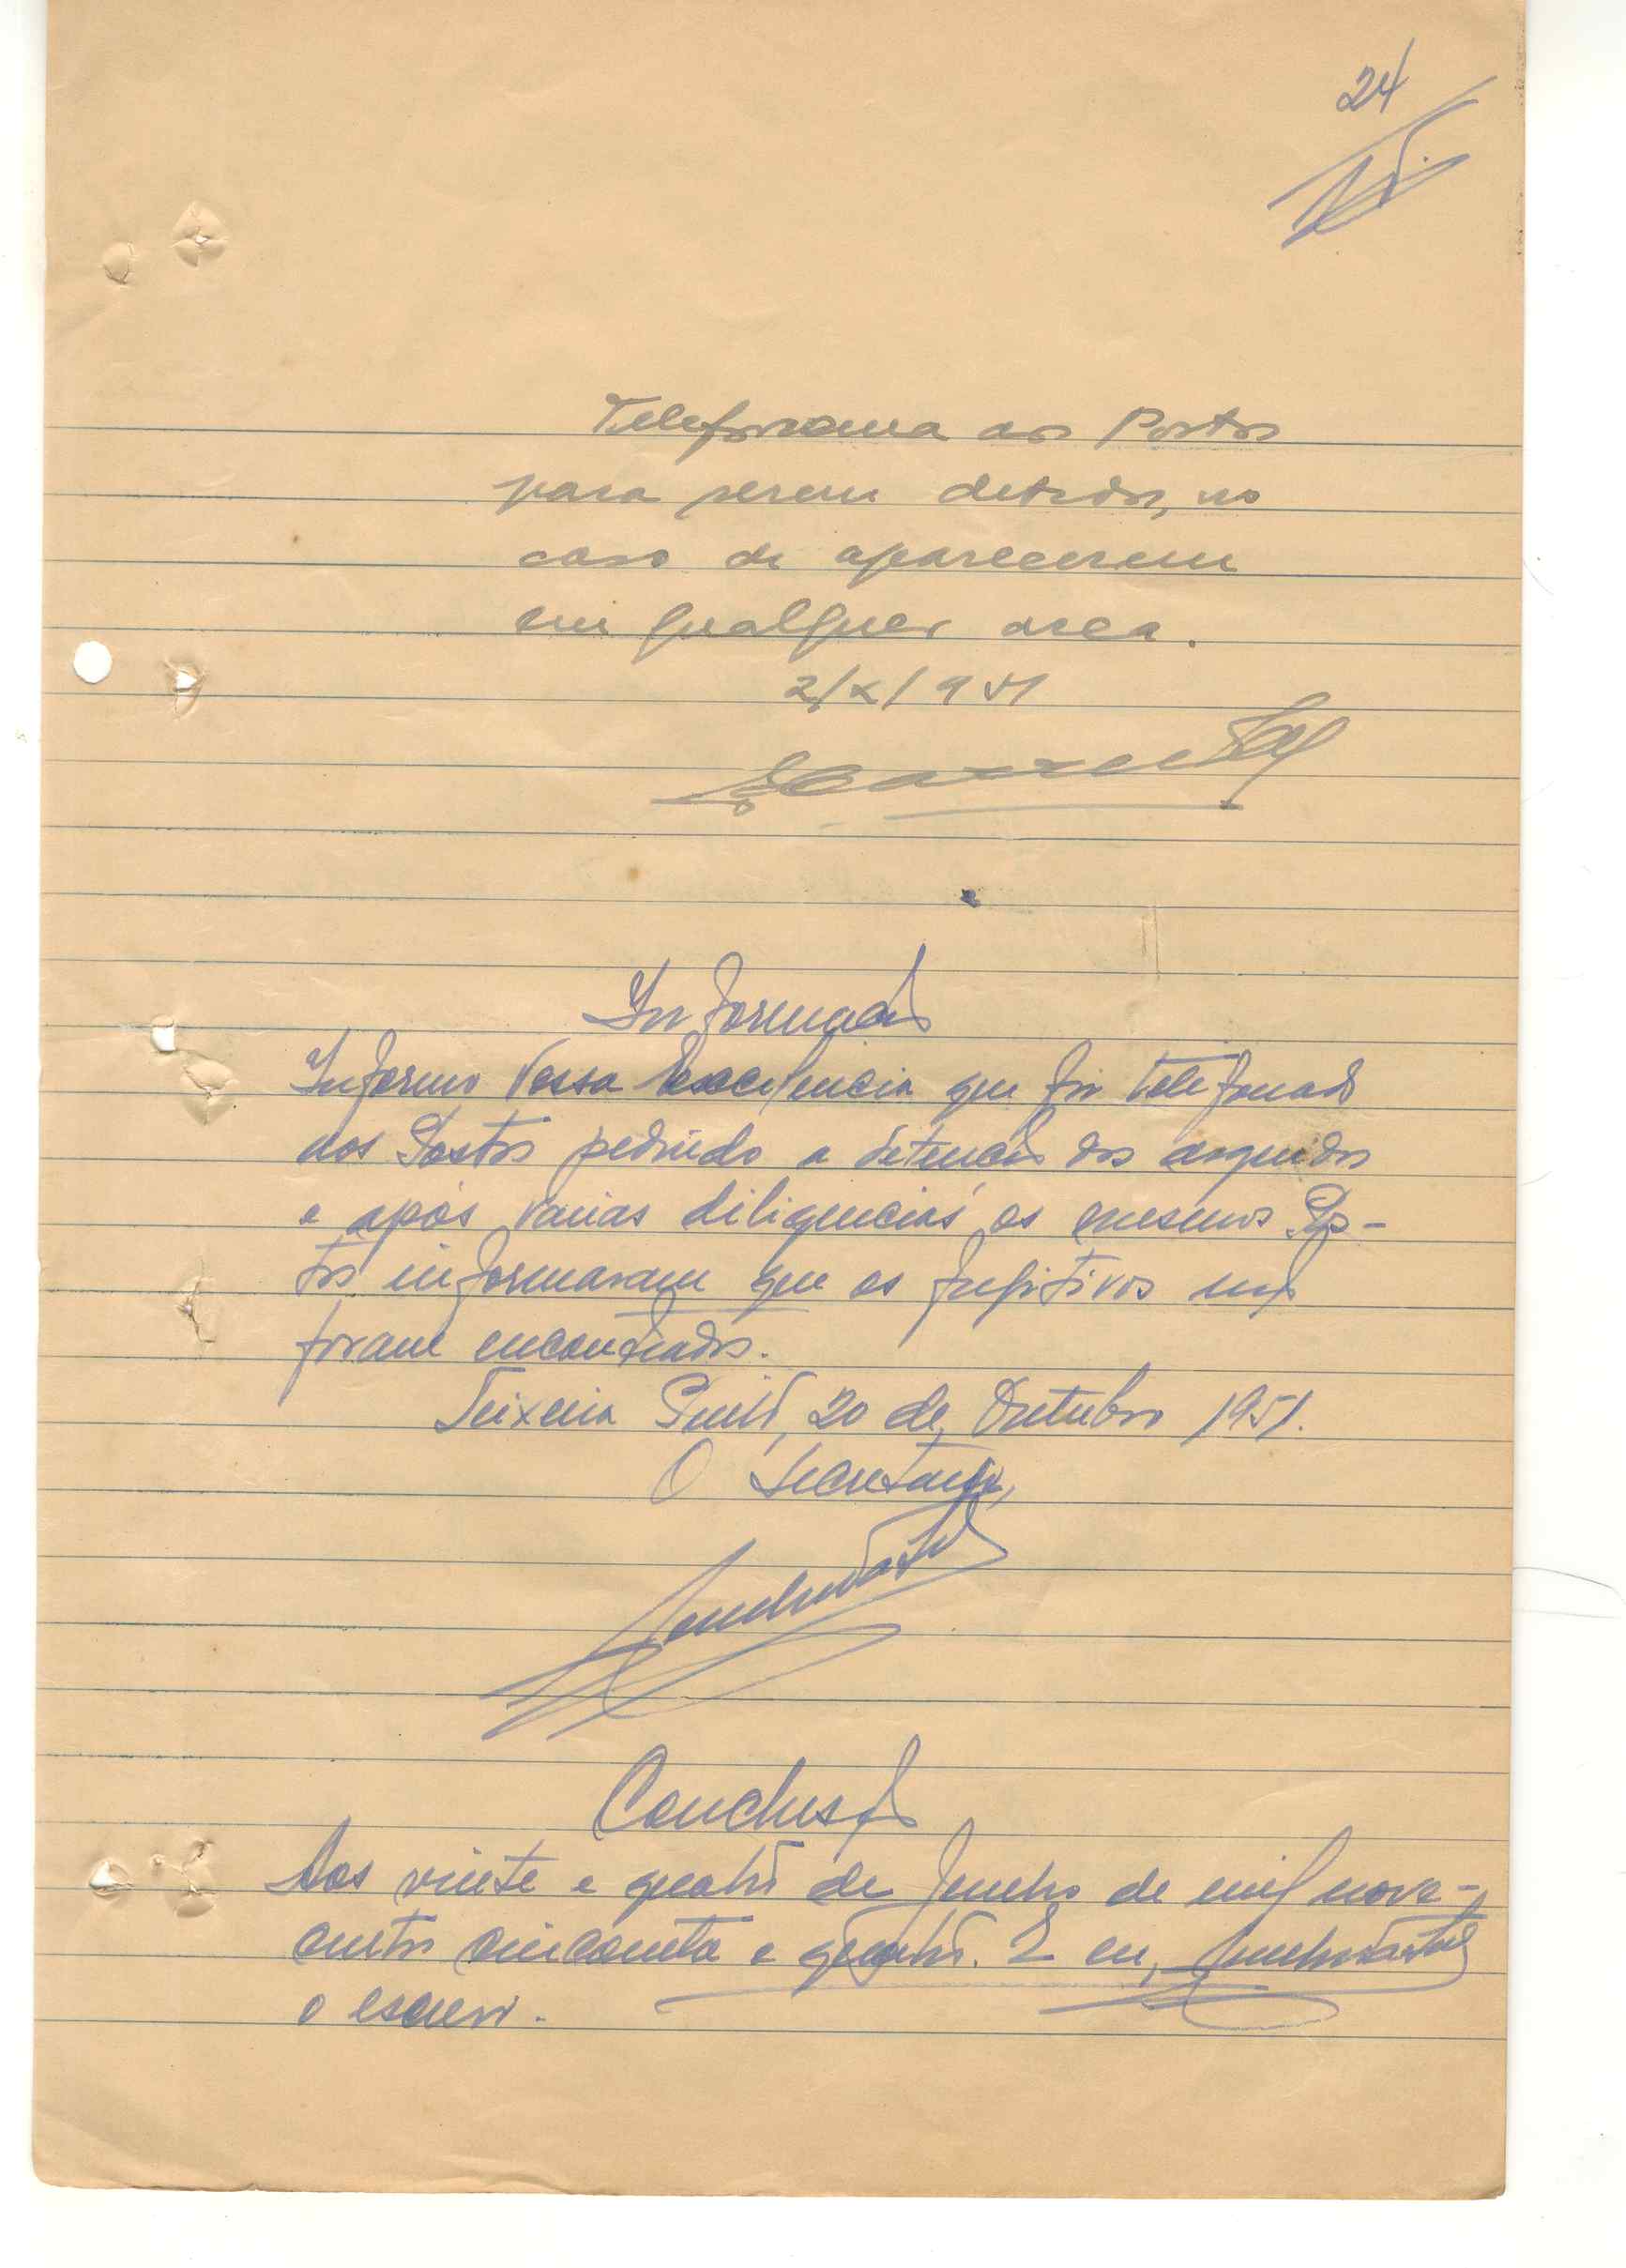 24
Telefonema aos Postos
para serem detidos, no
caso de aparecerem
em qualquer area.
2/X/951
Informação
Informo Vossa Excelencia que foi telefonado
aos Postos pedindo a detenção dos arguidos
e após varias diligencias os mesmos Pos-
tos informaram que os fugitivos não
foram encontrados.
Teixeira Pinto, 20 de Outubro 1951.
O Secretario,
Conclusão
Aos vinte e quatro de Junho de mil nove-
centos cincoenta e quatro. E eu,
o escrevi.